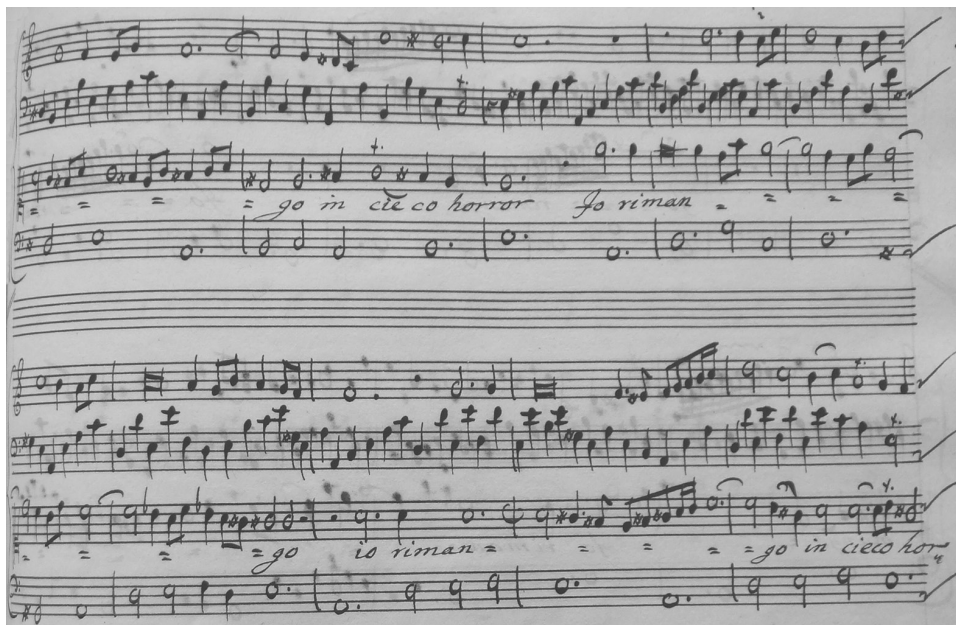 = = = = go in ciẽco horror Jo riman = = = =
= = = = go io riman = = = = = go in cieco hor